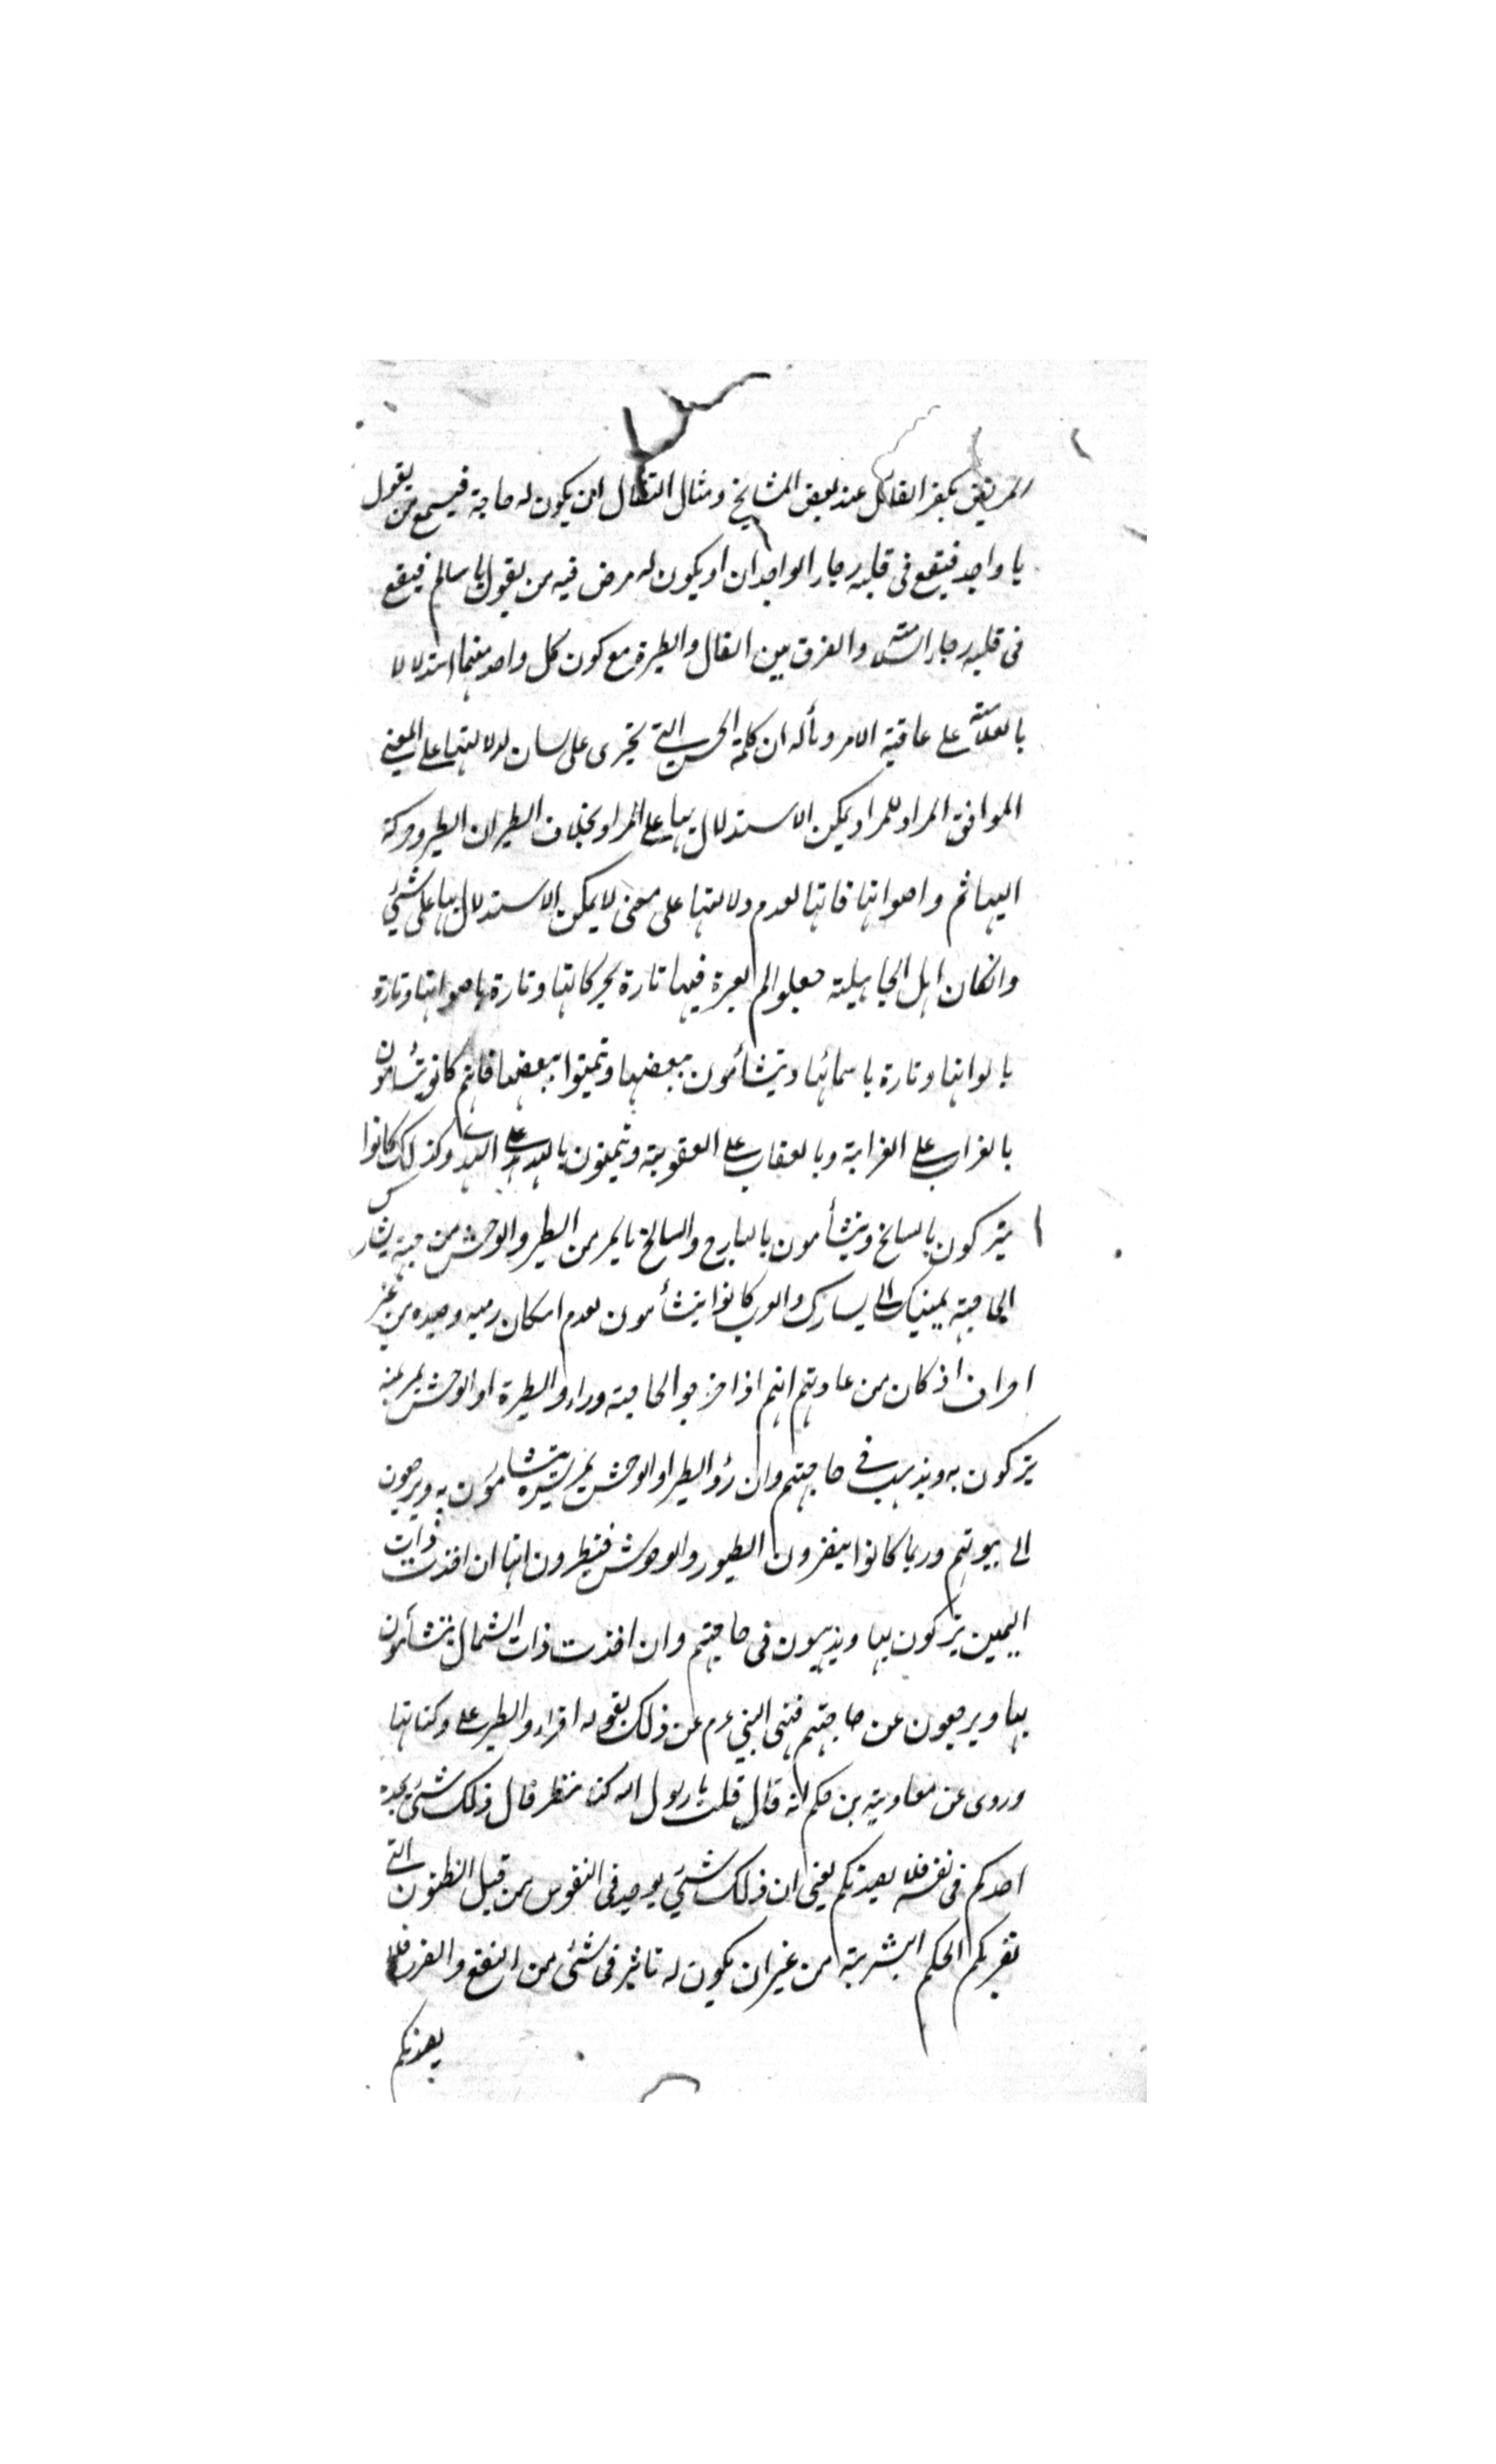 المريض يكفر القائل عند بعض المشايخ ومثال التفأل ان يكون له حاجة فيسمع من يقول
يا واجد فيقع في قلبه رجاء الواجدان او يكون له مرض فيه من يقول يا سالم فيقع
في قلبه رجاء السلامة والفرق بين الفال والطيرة مع كون كل واحد منهما استدلالا
بالعلامة على عاقبة الامر ومأله ان كلمة الحسن التي تجرى على لسان لدلالتها على المعنى
الموافق المراد للمراد يمكن الاستدلال بها على المراد بخلاف الطيران الطير وحركة
البهائم واصواتها فانها لعدم دلالتها على معنى لا يمكن الاستدلال بها على شئ
وانكان اهل الجاهلية جعلوا لم العبرة فيها تارة بحركاتها وتارة باصواتها وتارة
بالوانها وتارة باسمائها ويتشأمون ببعضها وتيمنوا ببعضها فانهم كانوا يتشأمون
بالغراب على الغرابة وبالعقاب على العقوبة وتيمنون بالهدهد على الهدى وكذلك كانوا
يتبركون بالسانح ويتشأمون بالبارح والسانح ما يمر من الطير والوحش من جهة يسارك
الى جهة يمينك الى يسارك والعرب كانوا يتشأمون لعدم امكان رميه وصيده من غير
انحراف اذ كان من عادتهم انهم اذا خرجوا لحاجته وراءوا الطيرة او الوحش يمر يمنة
يتبركون به ويذهب في حاجتهم وان رؤا الطير او الوحش يمر يسيره يتشأمون به ويرجعون
الى بيوتهم وربما كانوا ينفرون الطيور والوحوش فينظرون انها ان اخذت ذات
اليمين يتبركون بها ويذهبون في حاجتهم وان اخذت ذات الشمال يتشأمون
بها ويرجعون عن حاجتهم فنهى النبي ءم عن ذلك بقوله اقراءوا الطير على وكناتها
وروى عن معاوية بن حكم انه قال قلت يا رسول الله كنا نتطير قال ذلك شئ يجده
احدكم في نفسه فلا يصدنكم يعني ان ذلك شئ يوجد في النفوس من قبل الظنون التي
الحكم البشرية من غير ان يكون له تاثير في شئ من النفع والضر فلا
يصدنكم